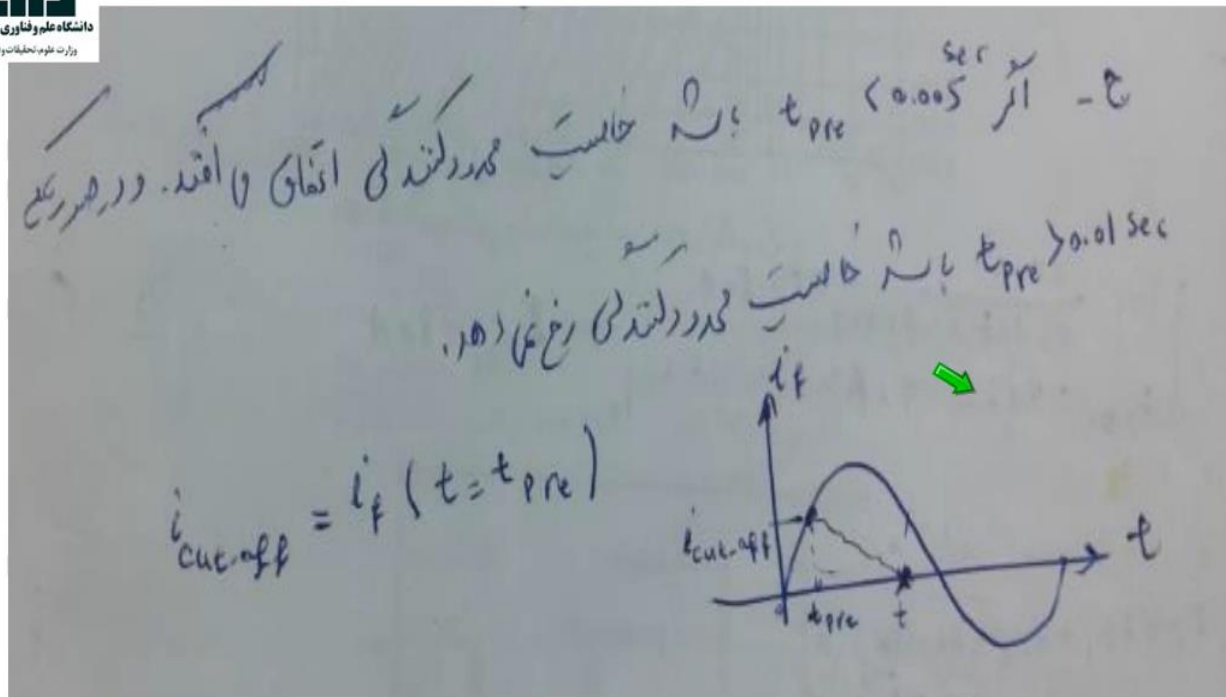 دانشگاه علم و فناوری
وزارت علوم، تحقیقات و
ج - اگر t_pre < 0.005 sec باشد خاصیت محدودکنندگی اتفاق می افتد. و در صورتیکه
t_pre > 0.01 sec باشد خاصیت محدودکنندگی رخ نمی دهد.
i_cut-off = i_f (t = t_pre)
i_f
i_cut-off
t
0 t_pre t